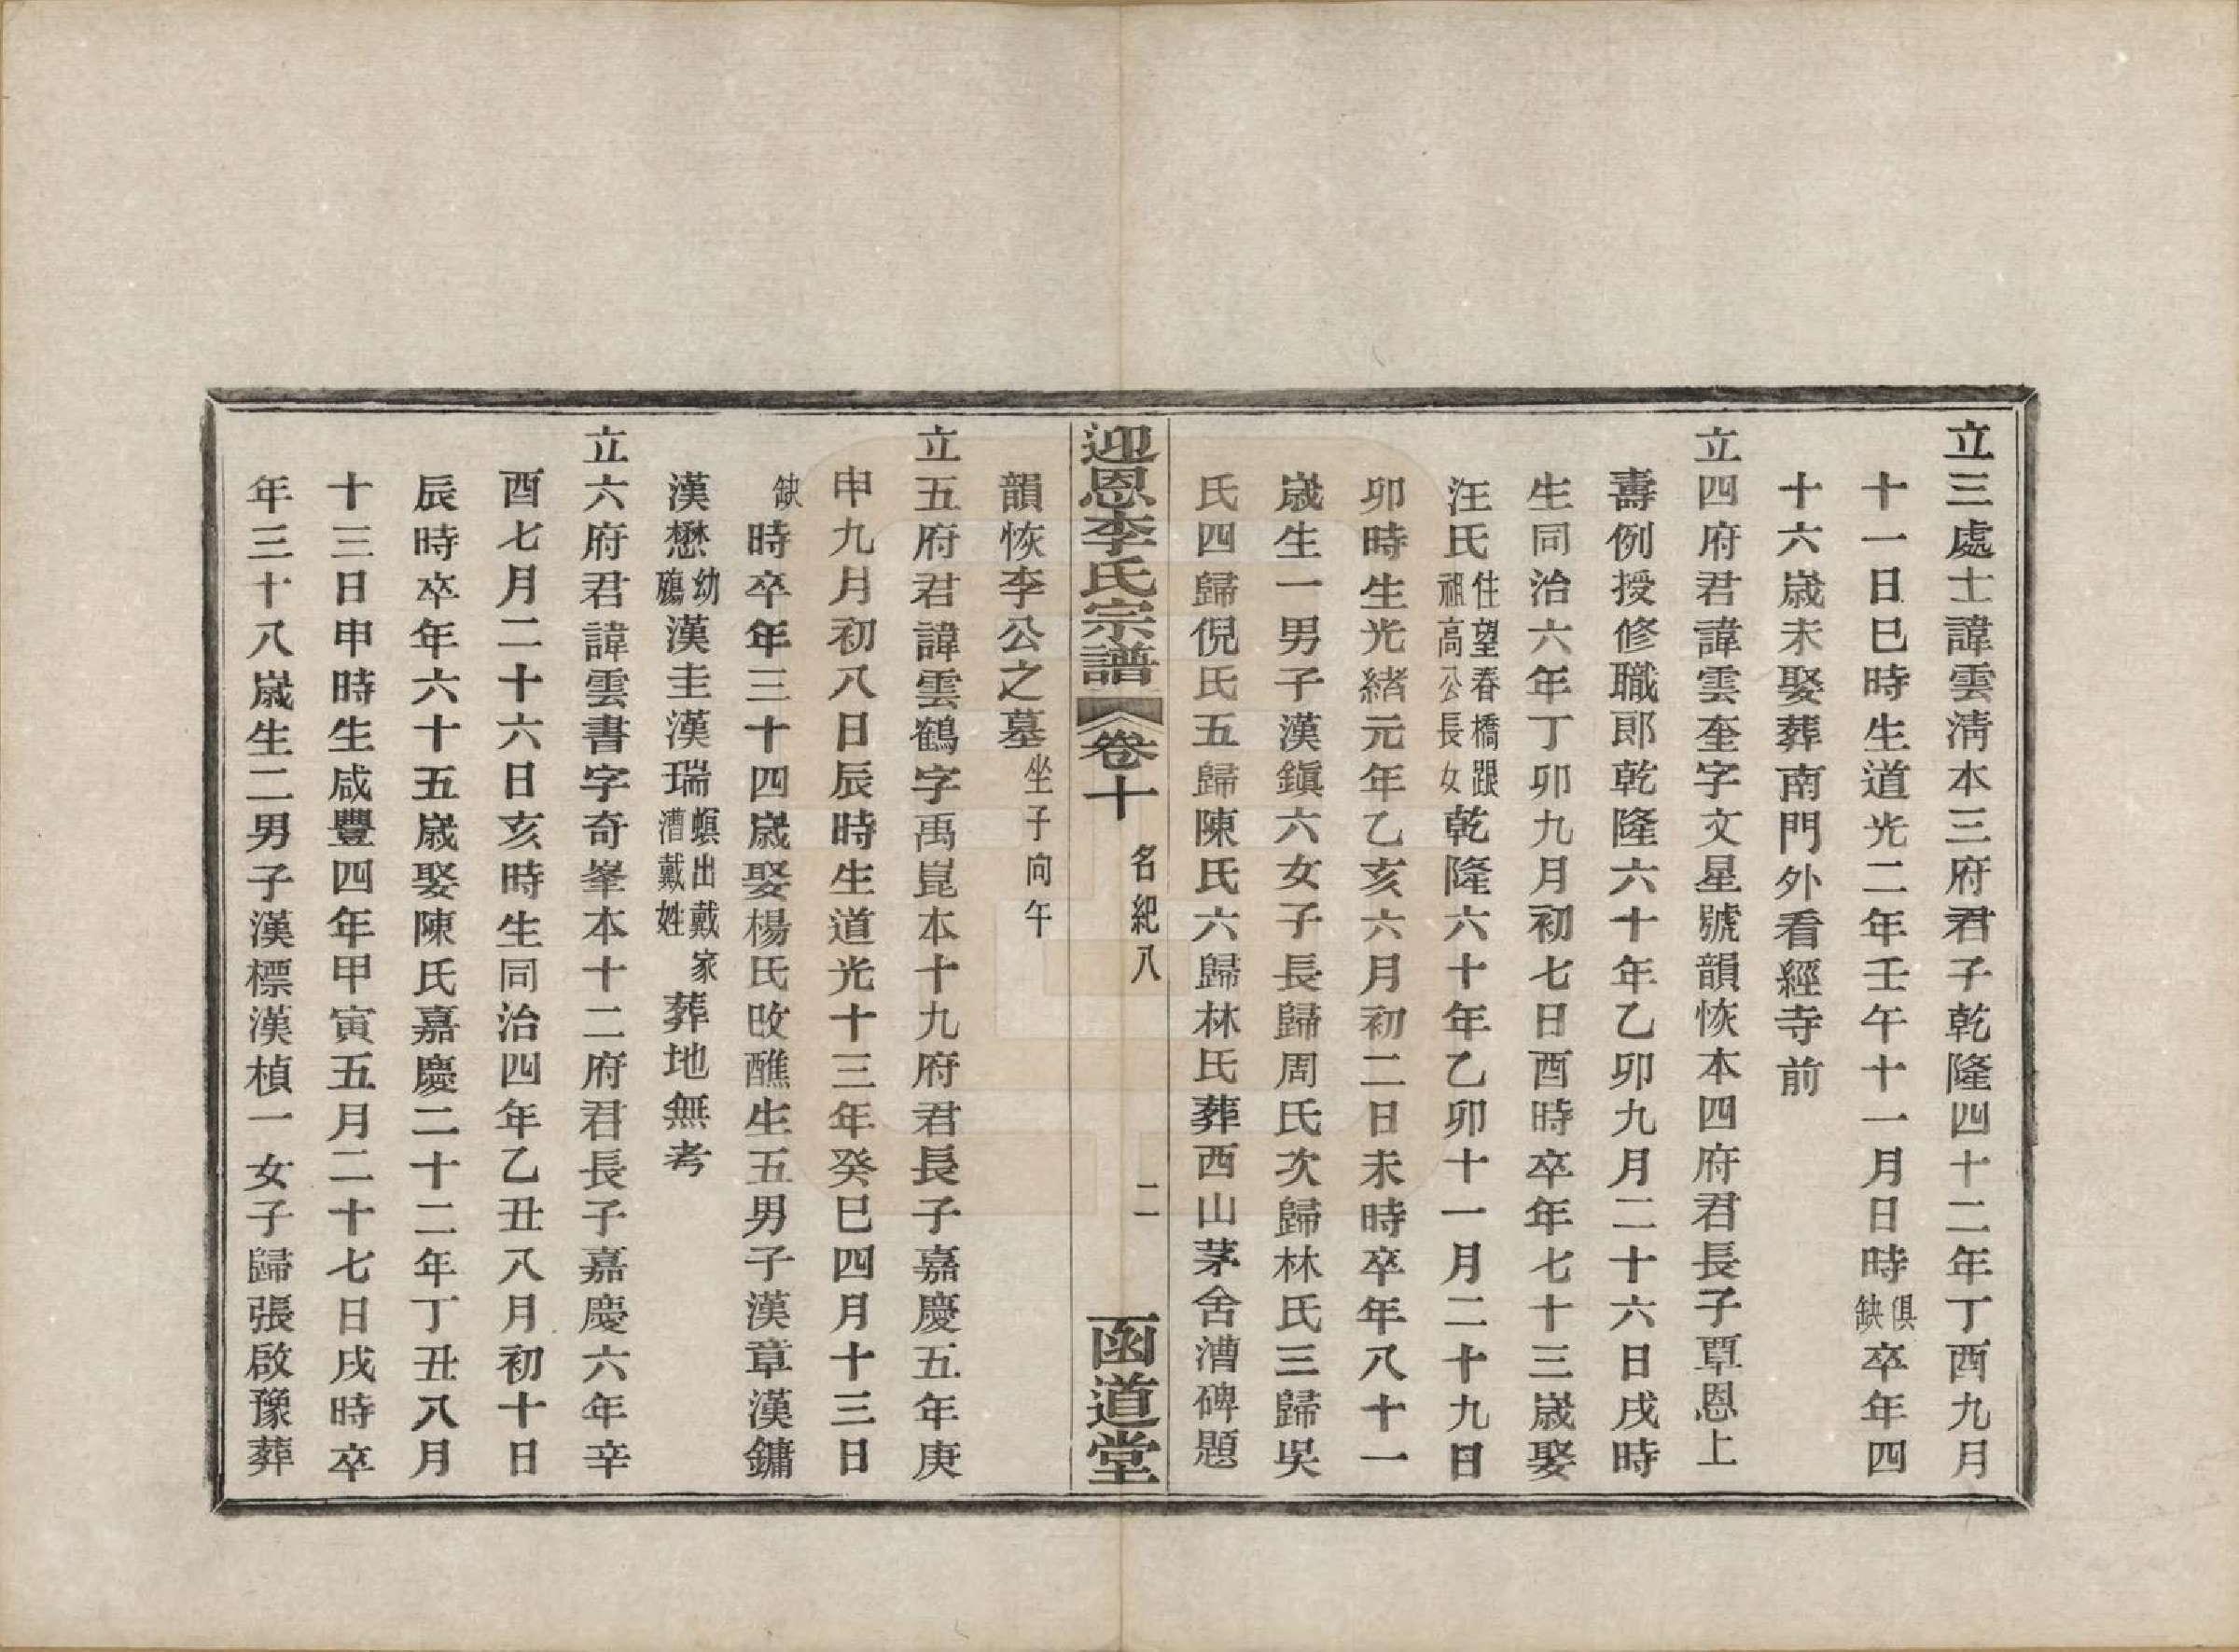 立三處士諱雲淸本三府君子乾隆四十二年丁酉九月
十一日巳時生道光二年壬午十一月日時俱缺卒年四
十六歲未娶葬南門外看經寺前
立四府君諱雲奎字文星號韻恢本四府君長子覃恩上
壽例授修職郎乾隆六十年乙卯九月二十六日戌時
生同治六年丁卯九月初七日酉時卒年七十三歲娶
汪氏住望春橋跟祖高公長女乾隆六十年乙卯十一月二十九日
卯時生光緒元年乙亥六月初二日未時卒年八十一
歲生一男子漢鎭六女子長歸周氏次歸林氏三歸吳
氏四歸倪氏五歸陳氏六歸林氏葬西山茅舍漕碑題
迎恩李氏宗譜 卷十 名紀八 二 函道堂
韻恢李公之墓坐子向午
立五府君諱雲鶴字禹崑本十九府君長子嘉慶五年庚
申九月初八日辰時生道光十三年癸巳四月十三日
缺時卒年三十四歲娶楊氏改醮生五男子漢章漢鏞
漢懋幼殤漢圭漢瑞螟出戴家漕戴姓葬地無考
立六府君諱雲書字奇峯本十二府君長子嘉慶六年辛
酉七月二十六日亥時生同治四年乙丑八月初十日
辰時卒年六十五歲娶陳氏嘉慶二十二年丁丑八月
十三日申時生咸豐四年甲寅五月二十七日戌時卒
年三十八歲生二男子漢標漢楨一女子歸張啟豫葬